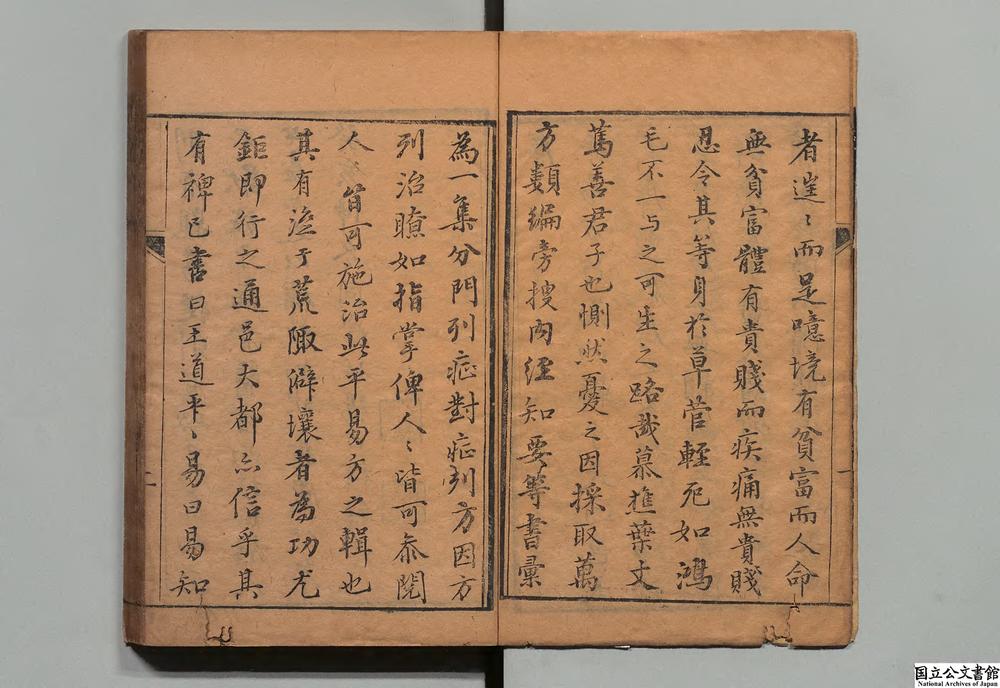 者逹〻而是噫境有貧富而人命
無貧富體有貴賤而疾痛無貴賤
忍令其等身於草菅輕死如鴻
毛不一与之可生之路哉慕樵葉丈
篤善君子也惻然憂之因採取萬
方類編旁搜内經知要等書彚
為一集分門列症對症列方因方
列治瞭如指掌俾人〻皆可叅閱
人〻皆可施治此平易方之輯也
其有造于荒陬僻壤者為功尤
鉅即行之通邑大都亦信乎其
有裨已書曰王道平〻易曰易知
一
二
国立公文書館
National Archives of Japan